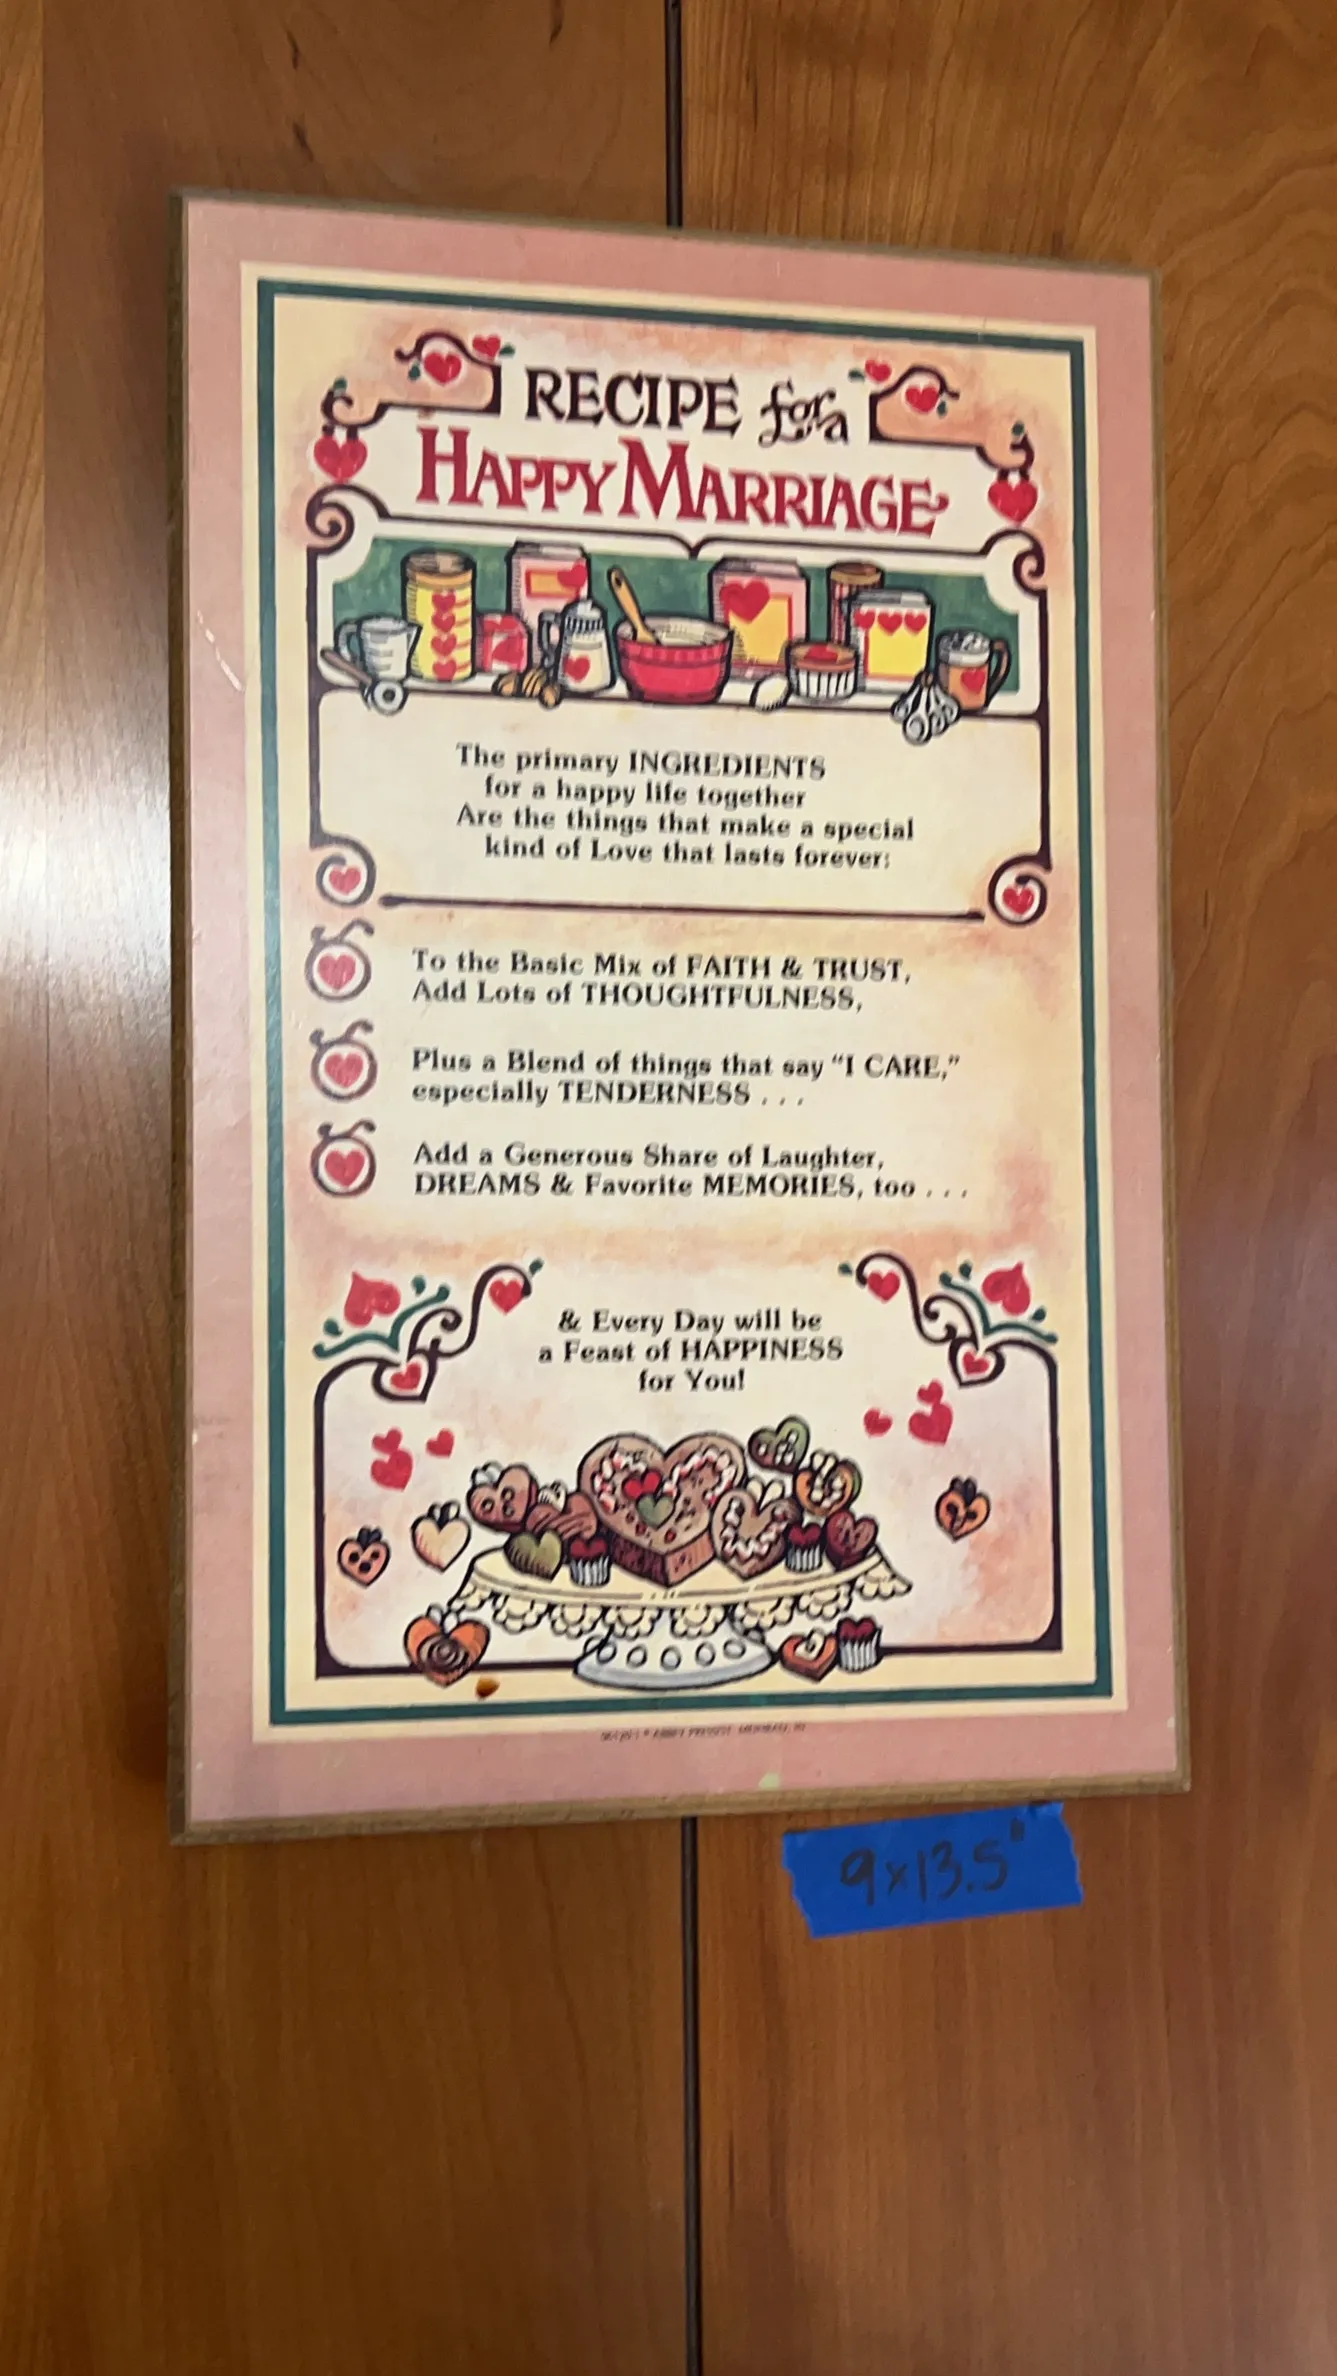 RECIPE for a
HAPPY MARRIAGE
The primary INGREDIENTS
for a happy life together
Are the things that make a special
kind of Love that lasts forever:
To the Basic Mix of FAITH & TRUST,
Add Lots of THOUGHTFULNESS,
Plus a Blend of things that say “I CARE,”
especially TENDERNESS . . .
Add a Generous Share of Laughter,
DREAMS & Favorite MEMORIES, too . . .
& Every Day will be
a Feast of HAPPINESS
for You!
9x13.5"